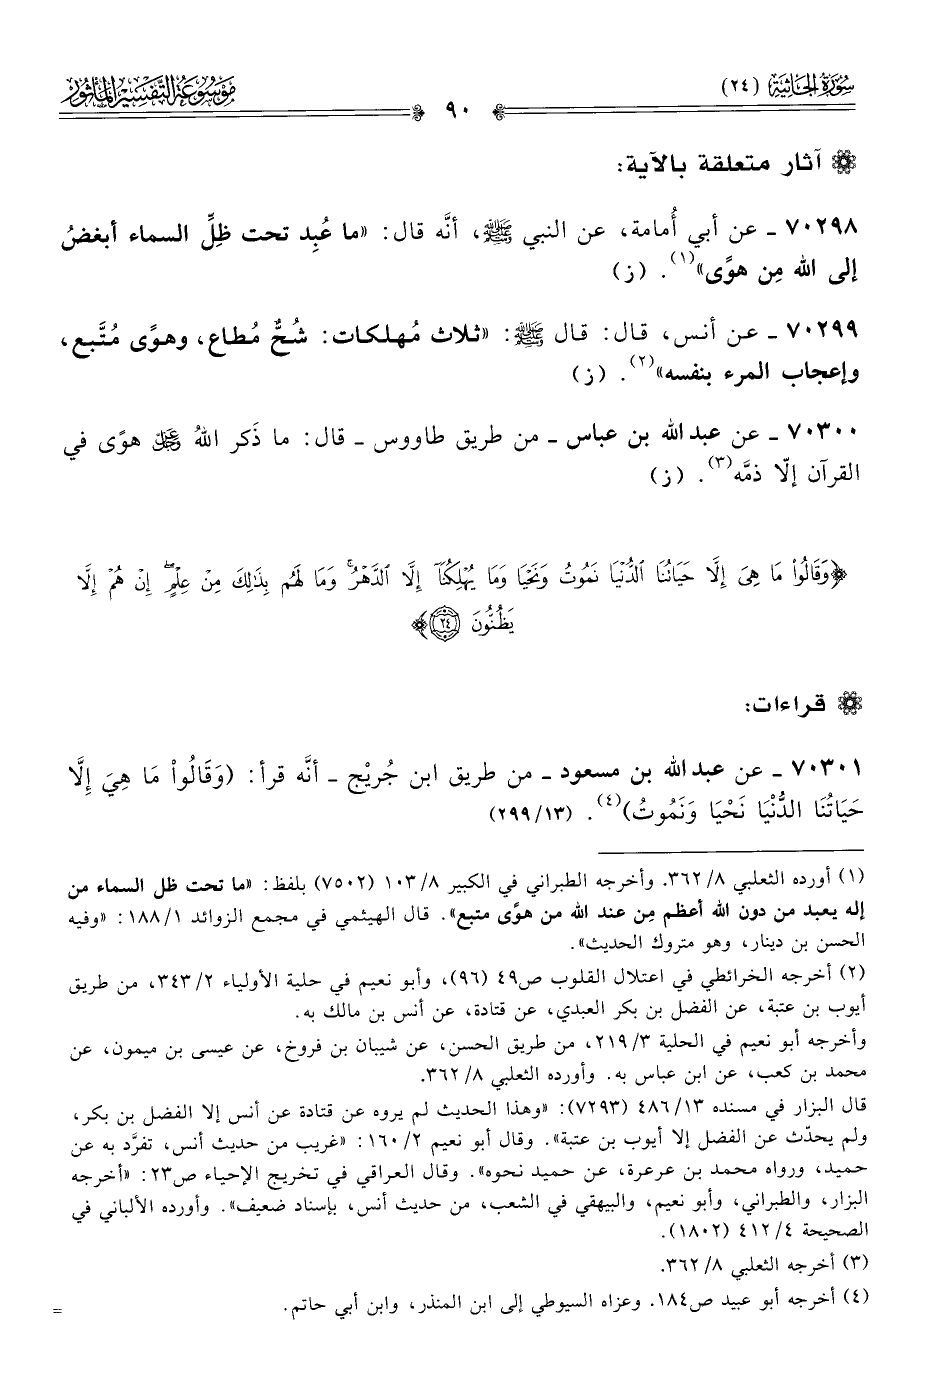 سُورَةُ الجَاثِيَة (٢٤)
٩٠
مَوْسُوعَةُ التَّفْسِيرِ المَأْثُورِ
آثار متعلقة بالآية:
٧٠٢٩٨ ـ عن أبي أُمامة، عن النبي ﷺ، أنَّه قال: «ما عُبِد تحت ظلِّ السماء أبغضُ
إلى الله مِن هوًى»(١). (ز)
٧٠٢٩٩ ـ عن أنس، قال: قال ﷺ: «ثلاث مُهلكات: شُحٌّ مُطاع، وهوًى مُتَّبع،
وإعجاب المرء بنفسه»(٢). (ز)
٧٠٣٠٠ ـ عن عبد الله بن عباس ـ من طريق طاووس ـ قال: ما ذَكر اللهُ ﷿ هوًى في
القرآن إلّا ذمَّه(٣). (ز)
﴿وَقَالُوا۟ مَا هِىَ إِلَّا حَيَاتُنَا ٱلدُّنْيَا نَمُوتُ وَنَحْيَا وَمَا يُهْلِكُنَآ إِلَّا ٱلدَّهْرُ ۚ وَمَا لَهُم بِذَٰلِكَ مِنْ عِلْمٍ ۖ إِنْ هُمْ إِلَّا
يَظُنُّونَ ٢٤﴾
قراءات:
٧٠٣٠١ ـ عن عبد الله بن مسعود ـ من طريق ابن جُريْج ـ أنَّه قرأ: (وَقَالُوا۟ مَا هِيَ إِلَّا
حَيَاتُنَا الدُّنْيَا نَحْيَا وَنَمُوتُ)(٤). (٢٩٩/١٣)
(١) أورده الثعلبي ٣٦٢/٨. وأخرجه الطبراني في الكبير ١٠٣/٨ (٧٥٠٢) بلفظ: «ما تحت ظل السماء من
إله يعبد من دون الله أعظم مِن عند الله من هوًى متبع». قال الهيثمي في مجمع الزوائد ١٨٨/١: «وفيه
الحسن بن دينار، وهو متروك الحديث».
(٢) أخرجه الخرائطي في اعتلال القلوب ص٤٩ (٩٦)، وأبو نعيم في حلية الأولياء ٣٤٣/٢، من طريق
أيوب بن عتبة، عن الفضل بن بكر العبدي، عن قتادة، عن أنس بن مالك به.
وأخرجه أبو نعيم في الحلية ٢١٩/٣، من طريق الحسن، عن شيبان بن فروخ، عن عيسى بن ميمون، عن
محمد بن كعب، عن ابن عباس به. وأورده الثعلبي ٣٦٢/٨.
قال البزار في مسنده ٤٨٦/١٣ (٧٢٩٣): «وهذا الحديث لم يروه عن قتادة عن أنس إلا الفضل بن بكر،
ولم يحدّث عن الفضل إلا أيوب بن عتبة». وقال أبو نعيم ١٦٠/٢: «غريب من حديث أنس، تفرَّد به عن
حميد، ورواه محمد بن عرعرة، عن حميد نحوه». وقال العراقي في تخريج الإحياء ص٢٣: «أخرجه
البزار، والطبراني، وأبو نعيم، والبيهقي في الشعب، من حديث أنس، بإسناد ضعيف». وأورده الألباني في
الصحيحة ٤١٢/٤ (١٨٠٢).
(٣) أخرجه الثعلبي ٣٦٢/٨.
(٤) أخرجه أبو عبيد ص١٨٤. وعزاه السيوطي إلى ابن المنذر، وابن أبي حاتم.
=